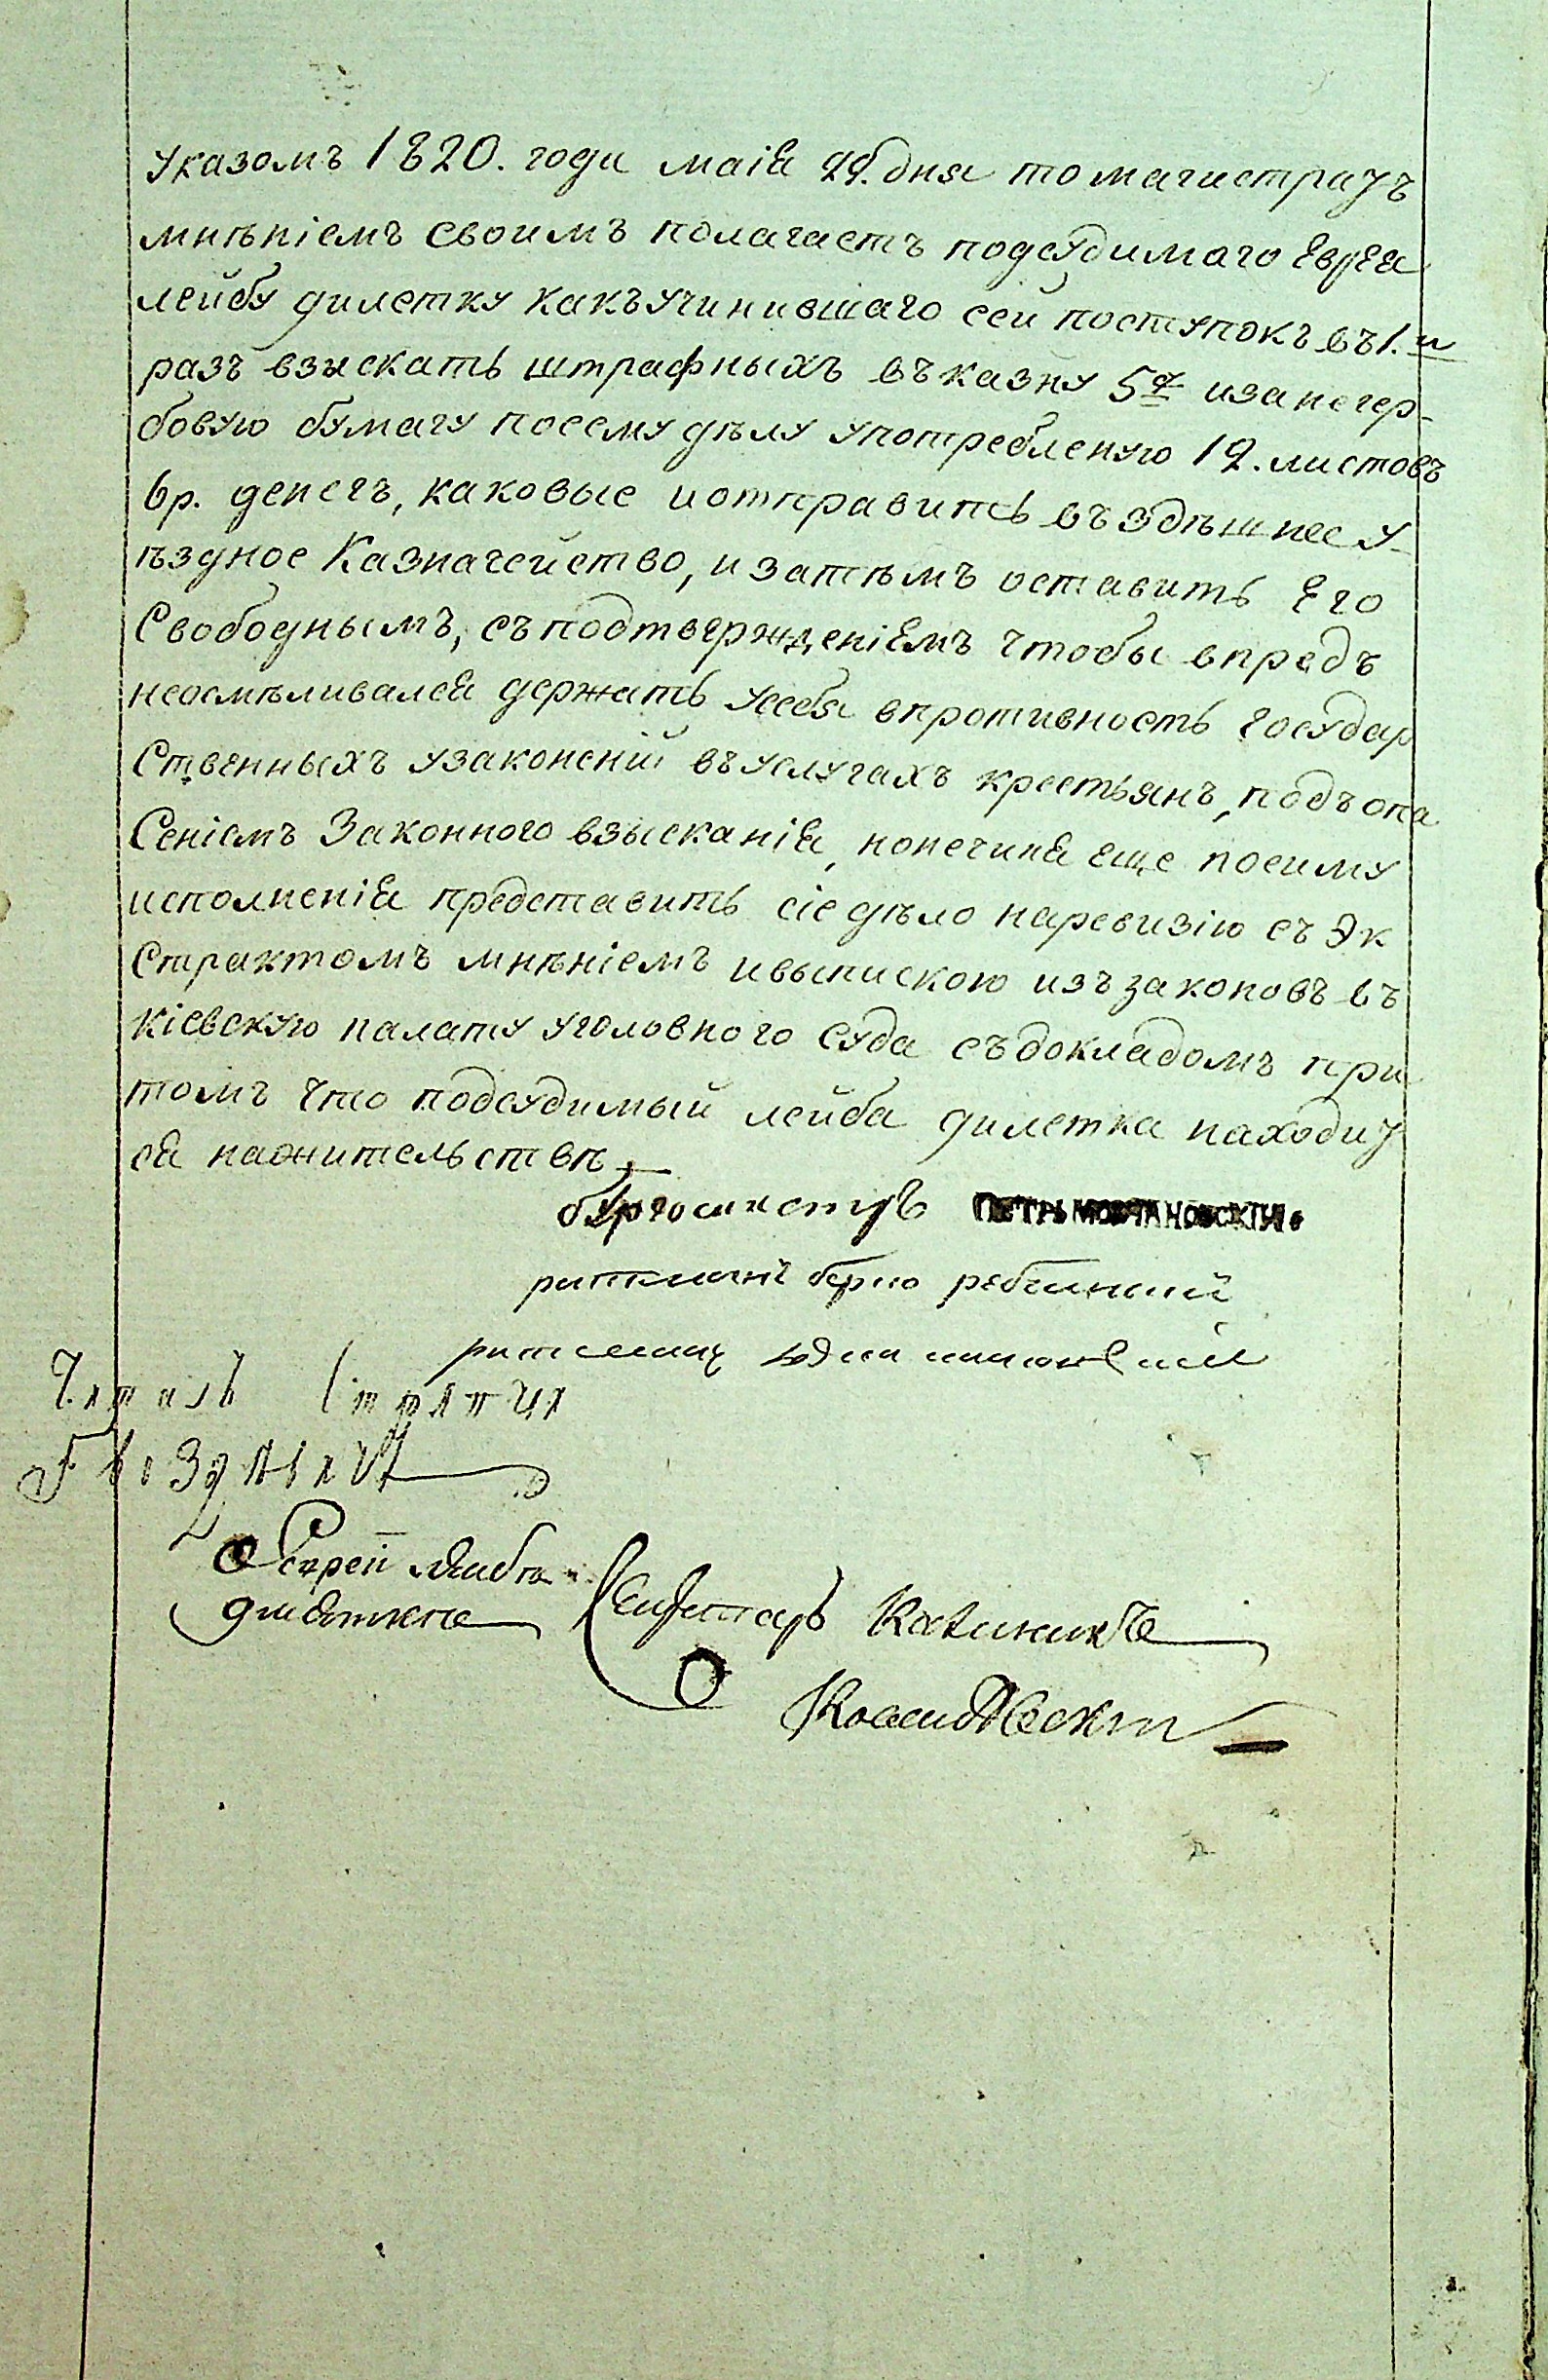 указомъ 1820. года маія 22. дня то магистратъ
мнѣніемъ своимъ полагаетъ подсудимаго Еврея
лейбу дилетку какъ учинившаго сей поступокъ въ 1.й
разъ взыскать штрафныхъ въ казну 5 и за негер-
бовую бумагу посему дѣлу употребленую 12. листовъ
6р. денегъ, каковые и отправить въ здѣшнее у-
ѣздное Казначейство, и затѣмъ оставить Его
Свободнымъ, съ подтвержденіемъ чтобы впредъ
неосмѣливался держать усебя впротивность государ
Ственныхъ узаконеній въ услугахъ крестьянъ, подъ опа
Сеніемъ Законного взысканія, нонечиня еще посиму
исполненія представить сіе дѣло наревизію съ Эк
Страктомъ мнѣніемъ и выпискою изъ законовъ въ
Кіевскую палату уголовного Суда съ докладомъ при
томъ что подсудимый лейба дилетка находит
ся нажительствѣ
бургомистръ ПЕТРЪ МОВЧАНОВСКІЙ
ратманъ
Читалъ Стряпчій
Еврей Лейба
дилетка
Секретарь Калиникъ